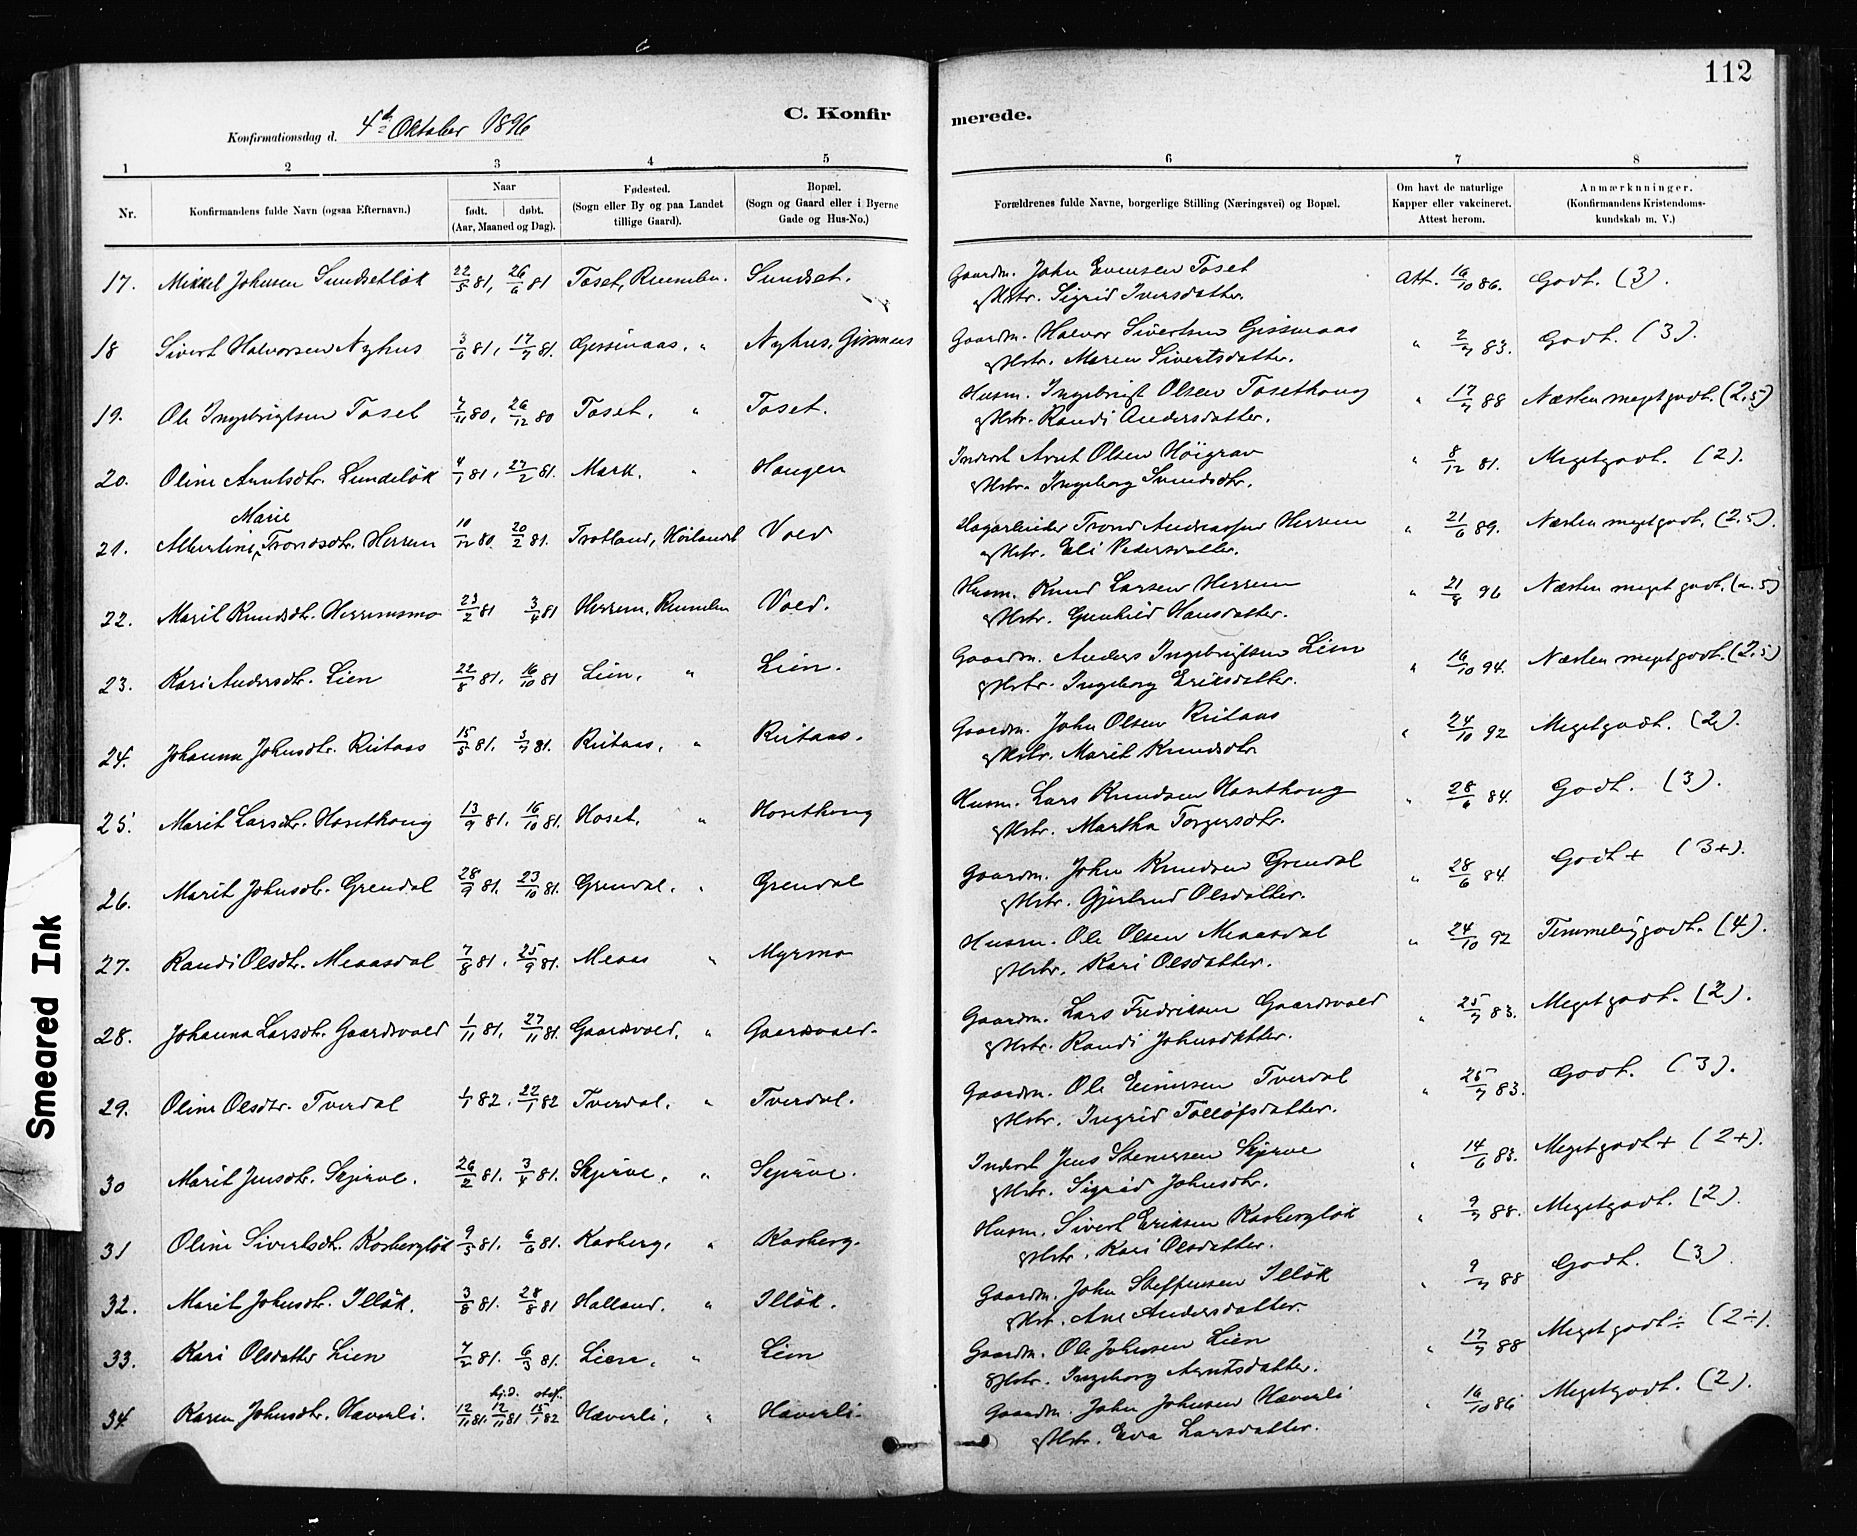 112
Konfirmationsdag d. 4de Oktober 1896
C. Konfirmerede.
1 2 3 4 5 6 7 8
Nr. | Konfirmandens fulde Navn (ogsaa Efternavn.) | Naar født. døbt. (Aar, Maaned og Dag). | Fødested. (Sogn eller By og paa Landet tillige Gaard). | Bopæl. (Sogn og Gaard eller i Byerne Gade og Hus-No.) | Forældrenes fulde Navne, borgerlige Stilling (Næringsvei) og Bopæl. | Om havt de naturlige Kapper eller vakcineret. Attest herom. | Anmærknninger. (Konfirmandens Kristendomskundskab m. V.)
17. Mikkel Johnsen Sundsetløk 22/5 81, 26/6 81 Toset, Rennebu. Sundset. Gaardm. John Evensen Toset Att. 16/10 86. Godt. (3).
& Hstr. Sigrid Iversdatter.
18 Sivert Halvorsen Nyhus 3/6 81, 17/7 81. Gissinaas, " Nyhus, Gissinaas Gaardm. Halvor Sivertsen Gissinaas " 2/7 83. Godt. (3).
& Hstr. Maren Sivertsdatter.
19. Ole Ingebrigtsen Toset 7/11 80, 26/12 80 Toset. " Toset. Husm. Ingebrigt Olsen Tosethaug " 17/7 88 Næsten meget godt. (2,5)
& Hstr. Randi Andersdatter.
20. Oline Arntsdtr. Lundeløk 4/1 81, 27/2 81. Mark. " Haugen Inderst Arnt Olsen Höigrav " 8/12 81. Meget godt. (2).
& Hstr. Ingeborg Svendsdtr.
Marie
21. Albertine, Trondsdtr. Herrem 10/12 80. 20/2 81. Trotland, Höilandet Vold Dagarbeider Trond Andreassen Herrem " 21/6 89. Næsten meget godt. (2,5).
& Hstr. Eli Pedersdatter.
22. Marit Knudsdtr. Herremsmo 23/2 81 3/4 81 Herrem, Rennebu Vold. Husm. Knud Larsen Herrem " 21/8 96 Næsten meget godt. (2.5)
& Hstr. Gunhild Hansdatter.
23. Kari Andersdtr. Lien 22/8 81, 16/10 81 Lien, " Lien. Gaardm. Anders Ingebrigtsen Lien " 16/10 94. Næsten meget godt. (2,5)
& Hstr. Ingeborg Eriksdatter.
24. Johanna Johnsdtr. Riitaas 15/5 81, 3/7 81. Riitaas, " Riitaas. Gaardm. John Olsen Riitaas " 24/10 92 Meget godt. (2).
& Hstr. Marit Knudsdtr.
25. Marit Larsdtr. Hosethaug 13/9 81. 16/10 81. Hoset, " Hosethaug Husm. Lars Knudsen Hosethaug " 28/6 84. Godt. (3).
& Hstr. Martha Torgersdtr.
26. Marit Johnsdtr. Grendal 28/9 81. 23/10 81. Grendal, " Grendal Gaardm. John Knudsen Grendal " 28/6 84. Godt + (3+).
& Hstr. Gjertrud Olsdatter.
27. Randi Olsdtr. Meaasdal 7/8 81. 25/9 81. Meaas " Myrmo Husm. Ole Olsen Meaasdal " 24/10 92 Temmelig godt. (4).
& Hstr. Kari Olsdatter.
28. Johanna Larsdtr. Gaardsvold 1/11 81, 27/11 81. Gaardsvold, " Gaardsvold. Gaardm. Lars Fredriksen Gaardsvold " 25/7 83. Meget godt. (2).
& Hstr. Randi Johnsdatter.
29. Oline Olsdtr. Tverdal 1/1 82, 22/1 82 Tverdal, " Tverdal. Gaardm. Ole Einersen Tverdal " 25/7 83. Godt. (3).
& Hstr. Ingrid Tollöfsdatter.
30 Marit Jensdtr. Skjerve. 26/2 81. 3/4 81. Skjerve, " Skjerve. Inderst Jens Stenersen Skjerve " 14/6 83. Meget godt + (2+).
& Hstr. Sigrid Johnsdtr.
31 Oline Sivertsdtr. Kosbergløk 9/5 81. 6/6 81. Kosberg, " Kosberg. Husm. Sivert Eriksen Kosbergløk " 9/7 88. Meget godt. (2)
& Hstr. Kari Olsdatter.
32. Marit Johnsdtr. Illøk. 3/8 81. 28/8 81 Halland, " Illøk. Gaardm. John Steffensen Illøk " 9/7 88 Godt. (3).
& Hst. Ane Andersdatter.
33. Kari Olsdatter Lien 7/2 81. 6/3 81. Lien, " Lien Gaardm. Ole Johnsen Lien " 17/7 88 Meget godt ÷ (2÷).
& Hstr. Ingeborg Arntsdatter.
hj.d. stadf.
34 Karen Johnsdtr. Hæverli. 12/11 81. 12/11 81. 15/1 82 Hæverli, " Hæverli. Gaardm. John Johnsen Hæverli " 16/10 86 Meget godt. (2).
& Hstr. Eva Larsdatter.
Smeared Ink